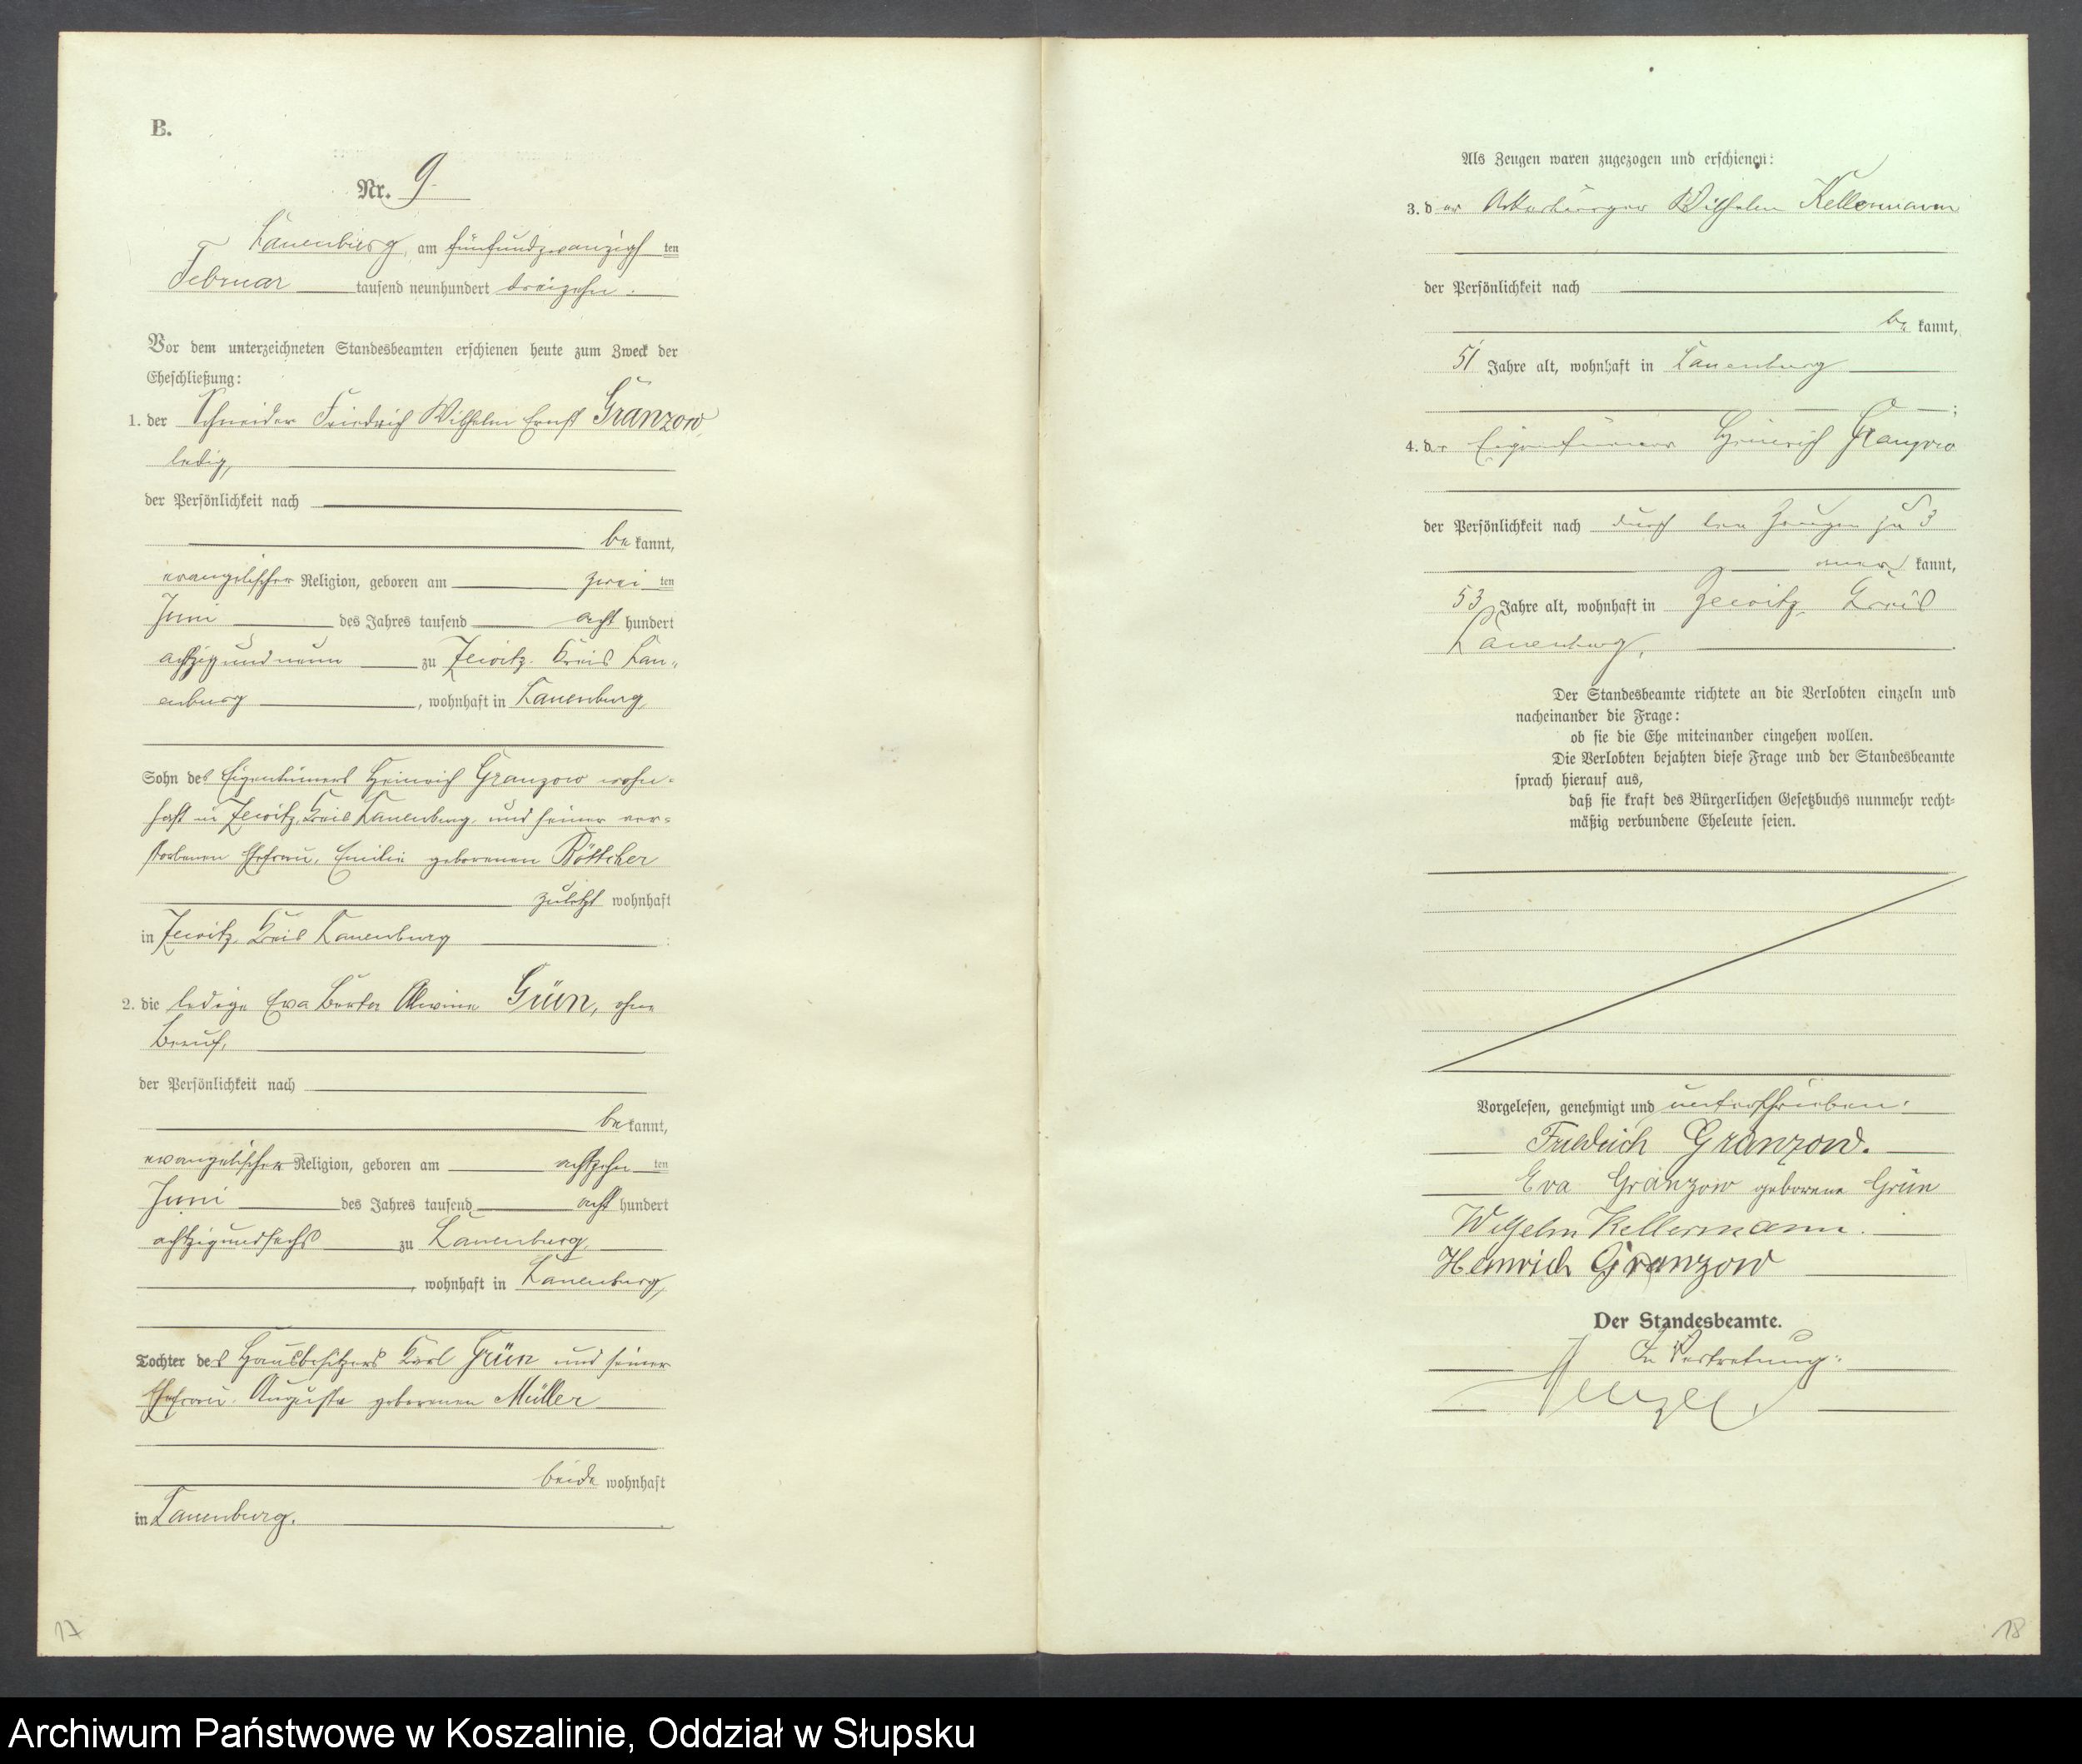 B.
Nr. 9.
Lauenburg, am fünfundzwanzigsten
Februar tausend neunhundert dreizehn.
Vor dem unterzeichneten Standesbeamten erschienen heute zum Zweck der
Eheschließung:
1. der Schneider Friedrich Wilhelm Ernst Granzow,
ledig,
der Persönlichkeit nach
bekannt,
evangelischer Religion, geboren am zweiten
Juni des Jahres tausend acht hundert
achtzigundneun zu Zewitz, Kreis Lau-
enburg, wohnhaft in Lauenburg,
Sohn des Eigentümers Heinrich Granzow wohn-
haft in Zewitz, Kreis Lauenburg, und seiner ver-
storbenen Ehefrau, Emilie geborenen Böttcher
zuletzt wohnhaft
in Zewitz, Kreis Lauenburg
2. die ledige Eva Berta Alwine Grün, ohne
Beruf,
der Persönlichkeit nach
bekannt,
evangelischer Religion, geboren am achtzehnten
Juni des Jahres tausend acht hundert
achtzigundsechs zu Lauenburg
, wohnhaft in Lauenburg,
Tochter des Hausbesitzers Karl Grün und seiner
Ehefrau, Auguste geborenen Müller
beide wohnhaft
in Lauenburg.
17
Als Zeugen waren zugezogen und erschienen:
3. der Ackerbürger Wilhelm Kellermann
der Persönlichkeit nach
bekannt,
51 Jahre alt, wohnhaft in Lauenburg
;
4. der Eigentümer Heinrich Granzow
der Persönlichkeit nach durch den Zeugen zu 3
anerkannt,
53 Jahre alt, wohnhaft in Zewitz, Kreis
Lauenburg.
Der Standesbeamte richtete an die Verlobten einzeln und
nacheinander die Frage:
ob sie die Ehe miteinander eingehen wollen.
Die Verlobten bejahten diese Frage und der Standesbeamte
sprach hierauf aus,
daß sie kraft des Bürgerlichen Gesetzbuchs nunmehr recht-
mäßig verbundene Eheleute seien.
Vorgelesen, genehmigt und unterschrieben:
Friedrich Granzow.
Eva Granzow geborene Grün
Wilhelm Kellermann.
Heinrich Granzow
Der Standesbeamte.
In Vertretung:
18
Archiwum Państwowe w Koszalinie, Oddział w Słupsku